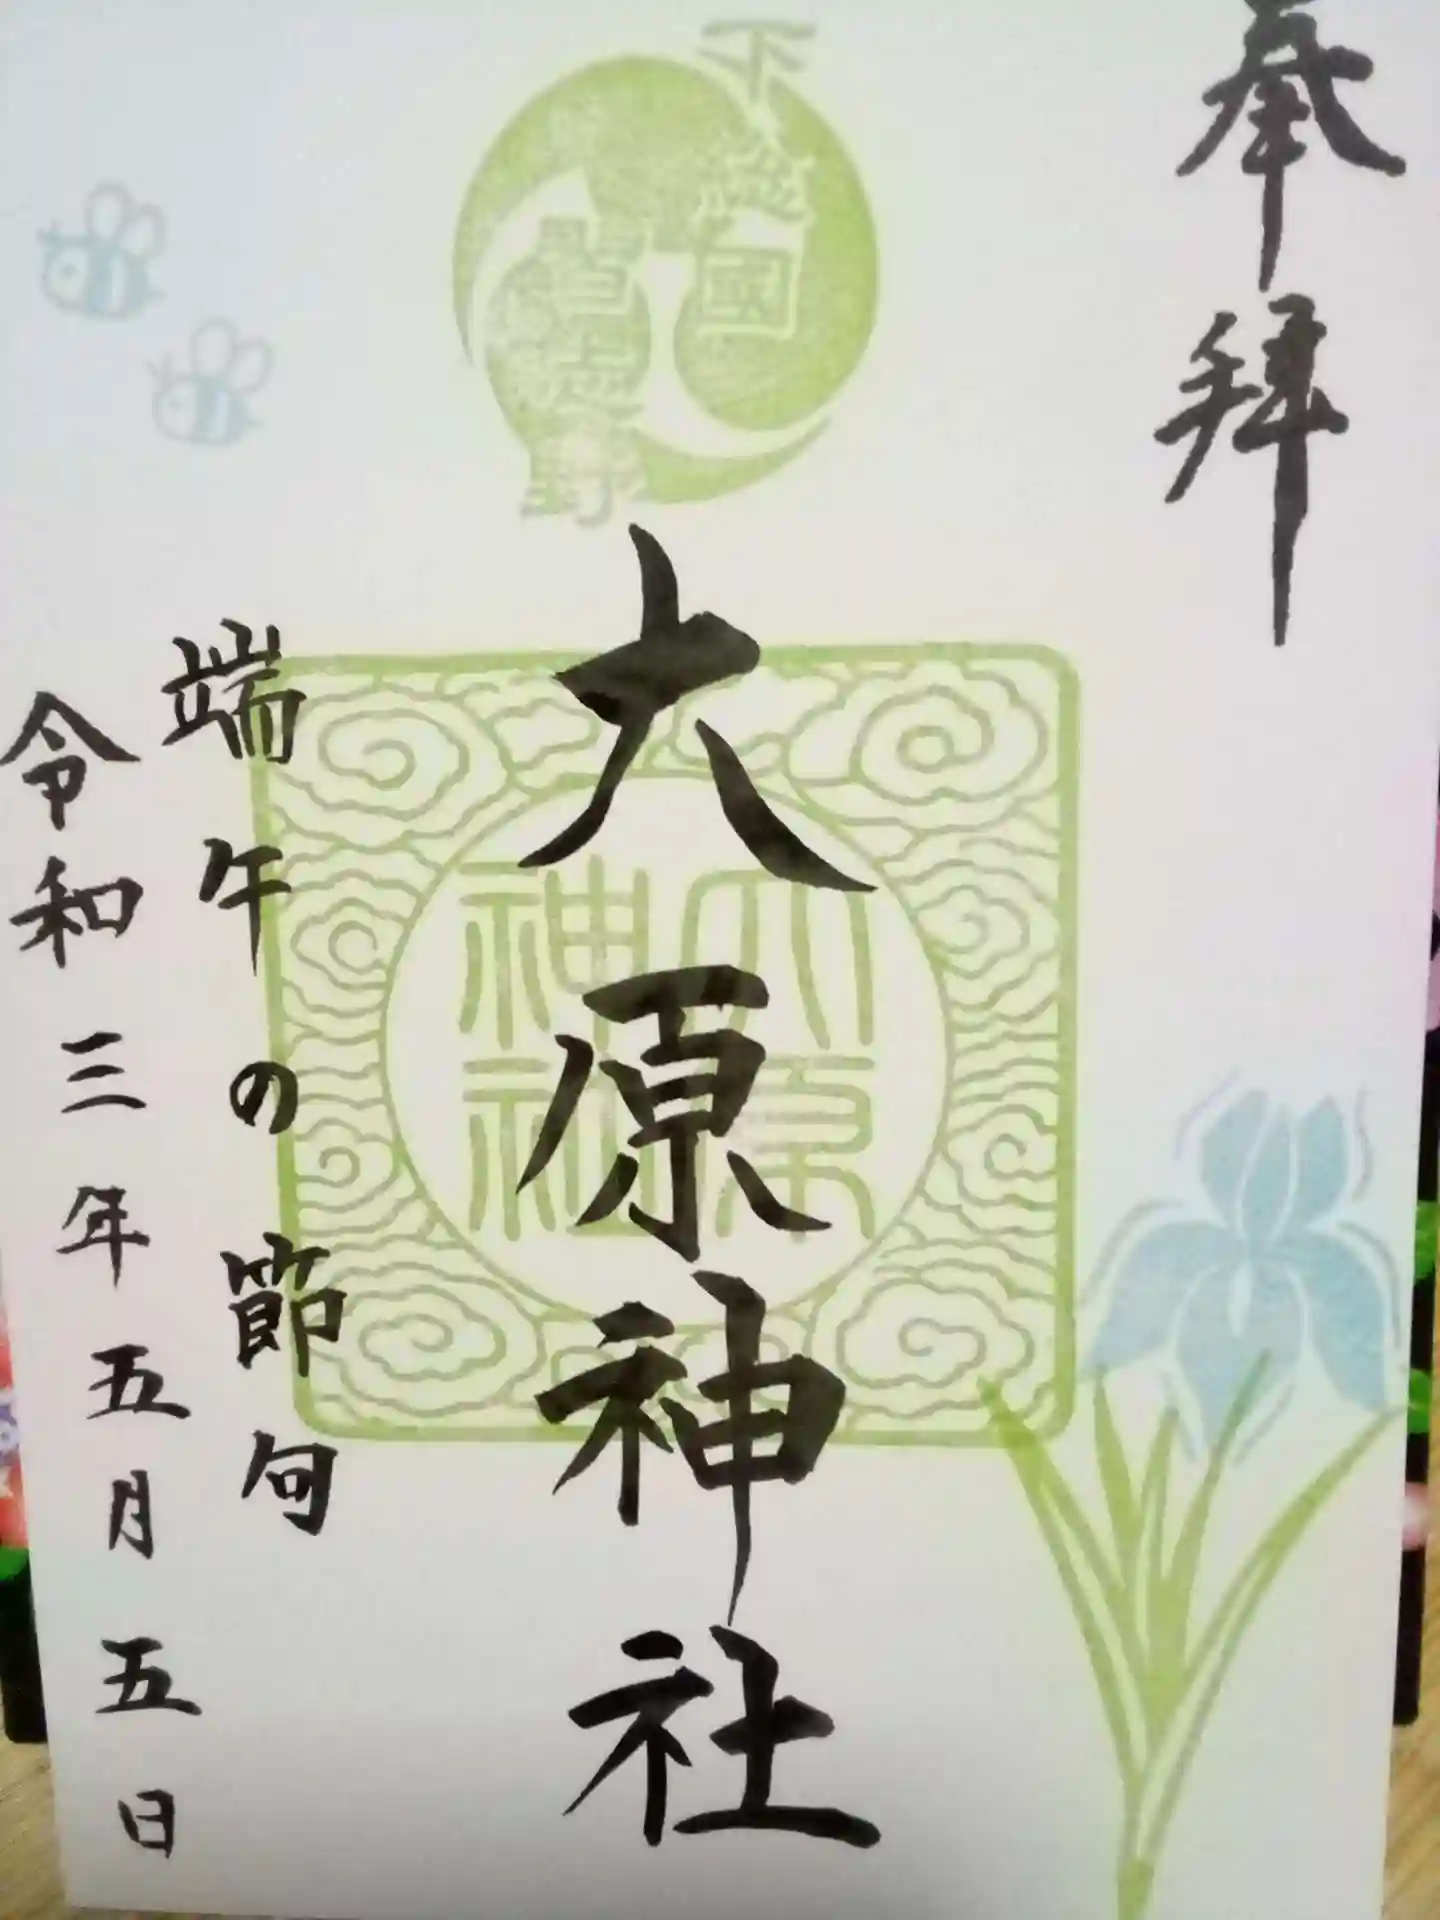 奉拝
下総國
習志野
大原神社
大原
神社
端午の節句
令和三年五月五日